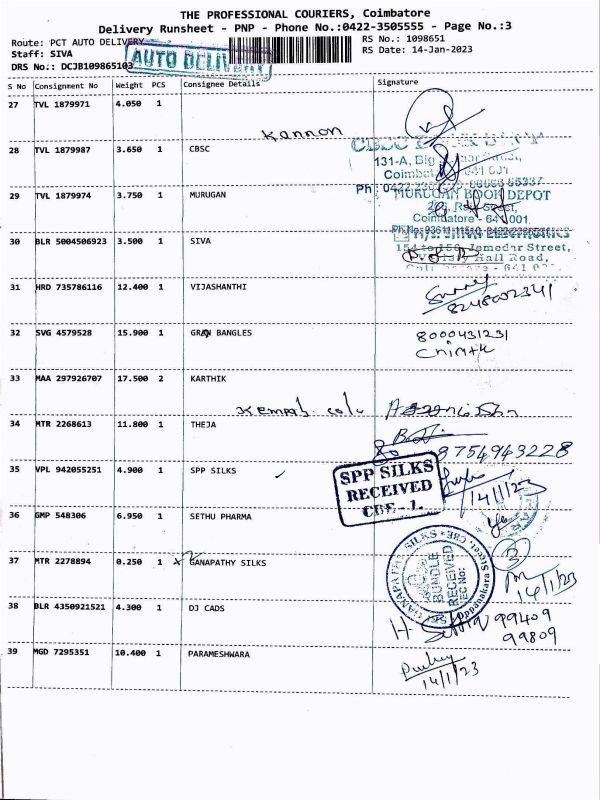 THE PROFESSIONAL COURIERS, Coimbatore
Delivery Runsheet - PNP - Phone No.:0422-3505555 - Page No.:3
Route: PCT AUTO DELIVERY RS No.: 1098651
Staff: SIVA RS Date: 14-Jan-2023
DRS No.: DCJB109865103 AUTO DELIVERY
S No Consignment No Weight PCS Consignee Details Signature
27 TVL 1879971 4.050 1
Kannon
28 TVL 1879987 3.650 1 CBSC
131-A, Big Street,
Coimbat 641 001
Ph: 0422
29 TVL 1879974 3.750 1 MURUGAN
MURUGAN BOOK DEPOT
Coimbatore - 641 001.
30 BLR 5004506923 3.500 1 SIVA
ELECTRONICS
154 to 156, Jamedar Street,
Hall Road,
31 HRD 735786116 12.400 1 VIJASHANTHI
8248002341
32 SVG 4579528 15.900 1 GRAN BANGLES
8000431231
33 MAA 297926707 17.500 2 KARTHIK
34 MTR 2268613 11.800 1 THEJA
8754943228
35 VPL 942055251 4.900 1 SPP SILKS
SPP SILKS
RECEIVED
CBE-1.
14/1/23
36 GMP 548306 6.950 1 SETHU PHARMA
37 MTR 2278894 0.250 1 GANAPATHY SILKS
GANAPATHY SILKS
BUNDLE
RECEIVED
3
14/1/23
38 BLR 4350921521 4.300 1 DJ CADS
99409
99809
39 MGD 7295351 10.400 1 PARAMESHWARA
14/1/23